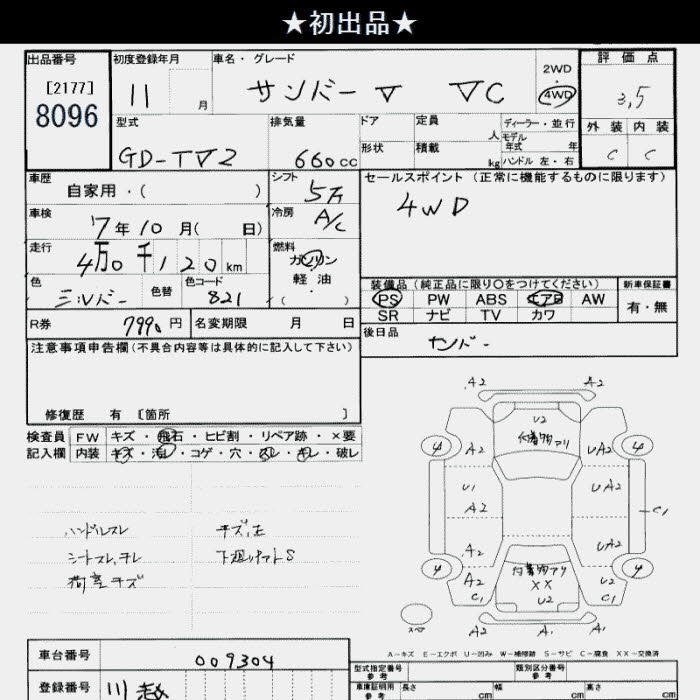 ★初出品★
出品番号
[2177]
8096
初度登録年月
11 月
車名・グレード
サンバー ▽ ▽C
2WD
・
4WD
評価点
3,5
外装 内装
C C
型式
GD-TV2
排気量
660cc
ドア
形状
定員
人
積載
kg
ディーラー・並行
モデル
年式 年
ハンドル 左・右
車歴
自家用・( )
シフト
5万
セールスポイント (正常に機能するものに限ります)
4WD
車検
7年10月( 日)
冷房
A/C
走行
4万0千120km
燃料
ガソリン
軽油
( )
色
シルバー
色替
色コード
821
装備品(純正品に限り○をつけてください)
新車保証書
PS PW ABS エアB AW
有・無
SR ナビ TV カワ
R券
7990円
名変期限 月 日
後日品
注意事項申告欄(不具合内容等は具体的に記入して下さい)
修復歴 有 [箇所 ]
検査員
記入欄
FW キズ・飛石・ヒビ割・リペア跡・×要
内装 キズ・汚レ・コゲ・穴・スレ・キレ・破レ
ハンドルスレ
シートスレ、キレ
荷室キズ
下廻りサットS
A2 A2
4 A2 U2 付着物アリ UA2 4
U1 UA2
A2 C1
A2 UA2
4 A2 付着物アリ U2 4
C1 XX C1
U2
A2 A1 A1
スペア
A-キズ E-エクボ U-凹み W-補修跡 S-サビ C-腐食 XX-交換済
車台番号
009304
登録番号
型式指定番号
参考
類別区分番号
参考
車庫証明用
参考
長さ cm
幅 cm
高さ cm